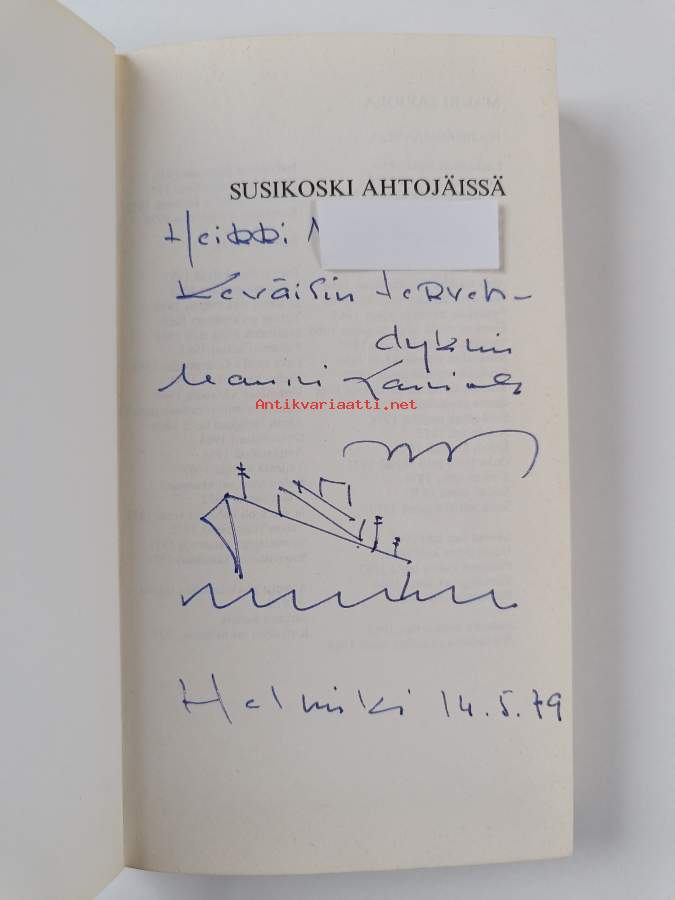 SUSIKOSKI AHTOJÄISSÄ
Heikki
Keväisin terveh-
dyksin
Mauri Sariola
Antikvariaatti.net
Helsinki 14.5.79